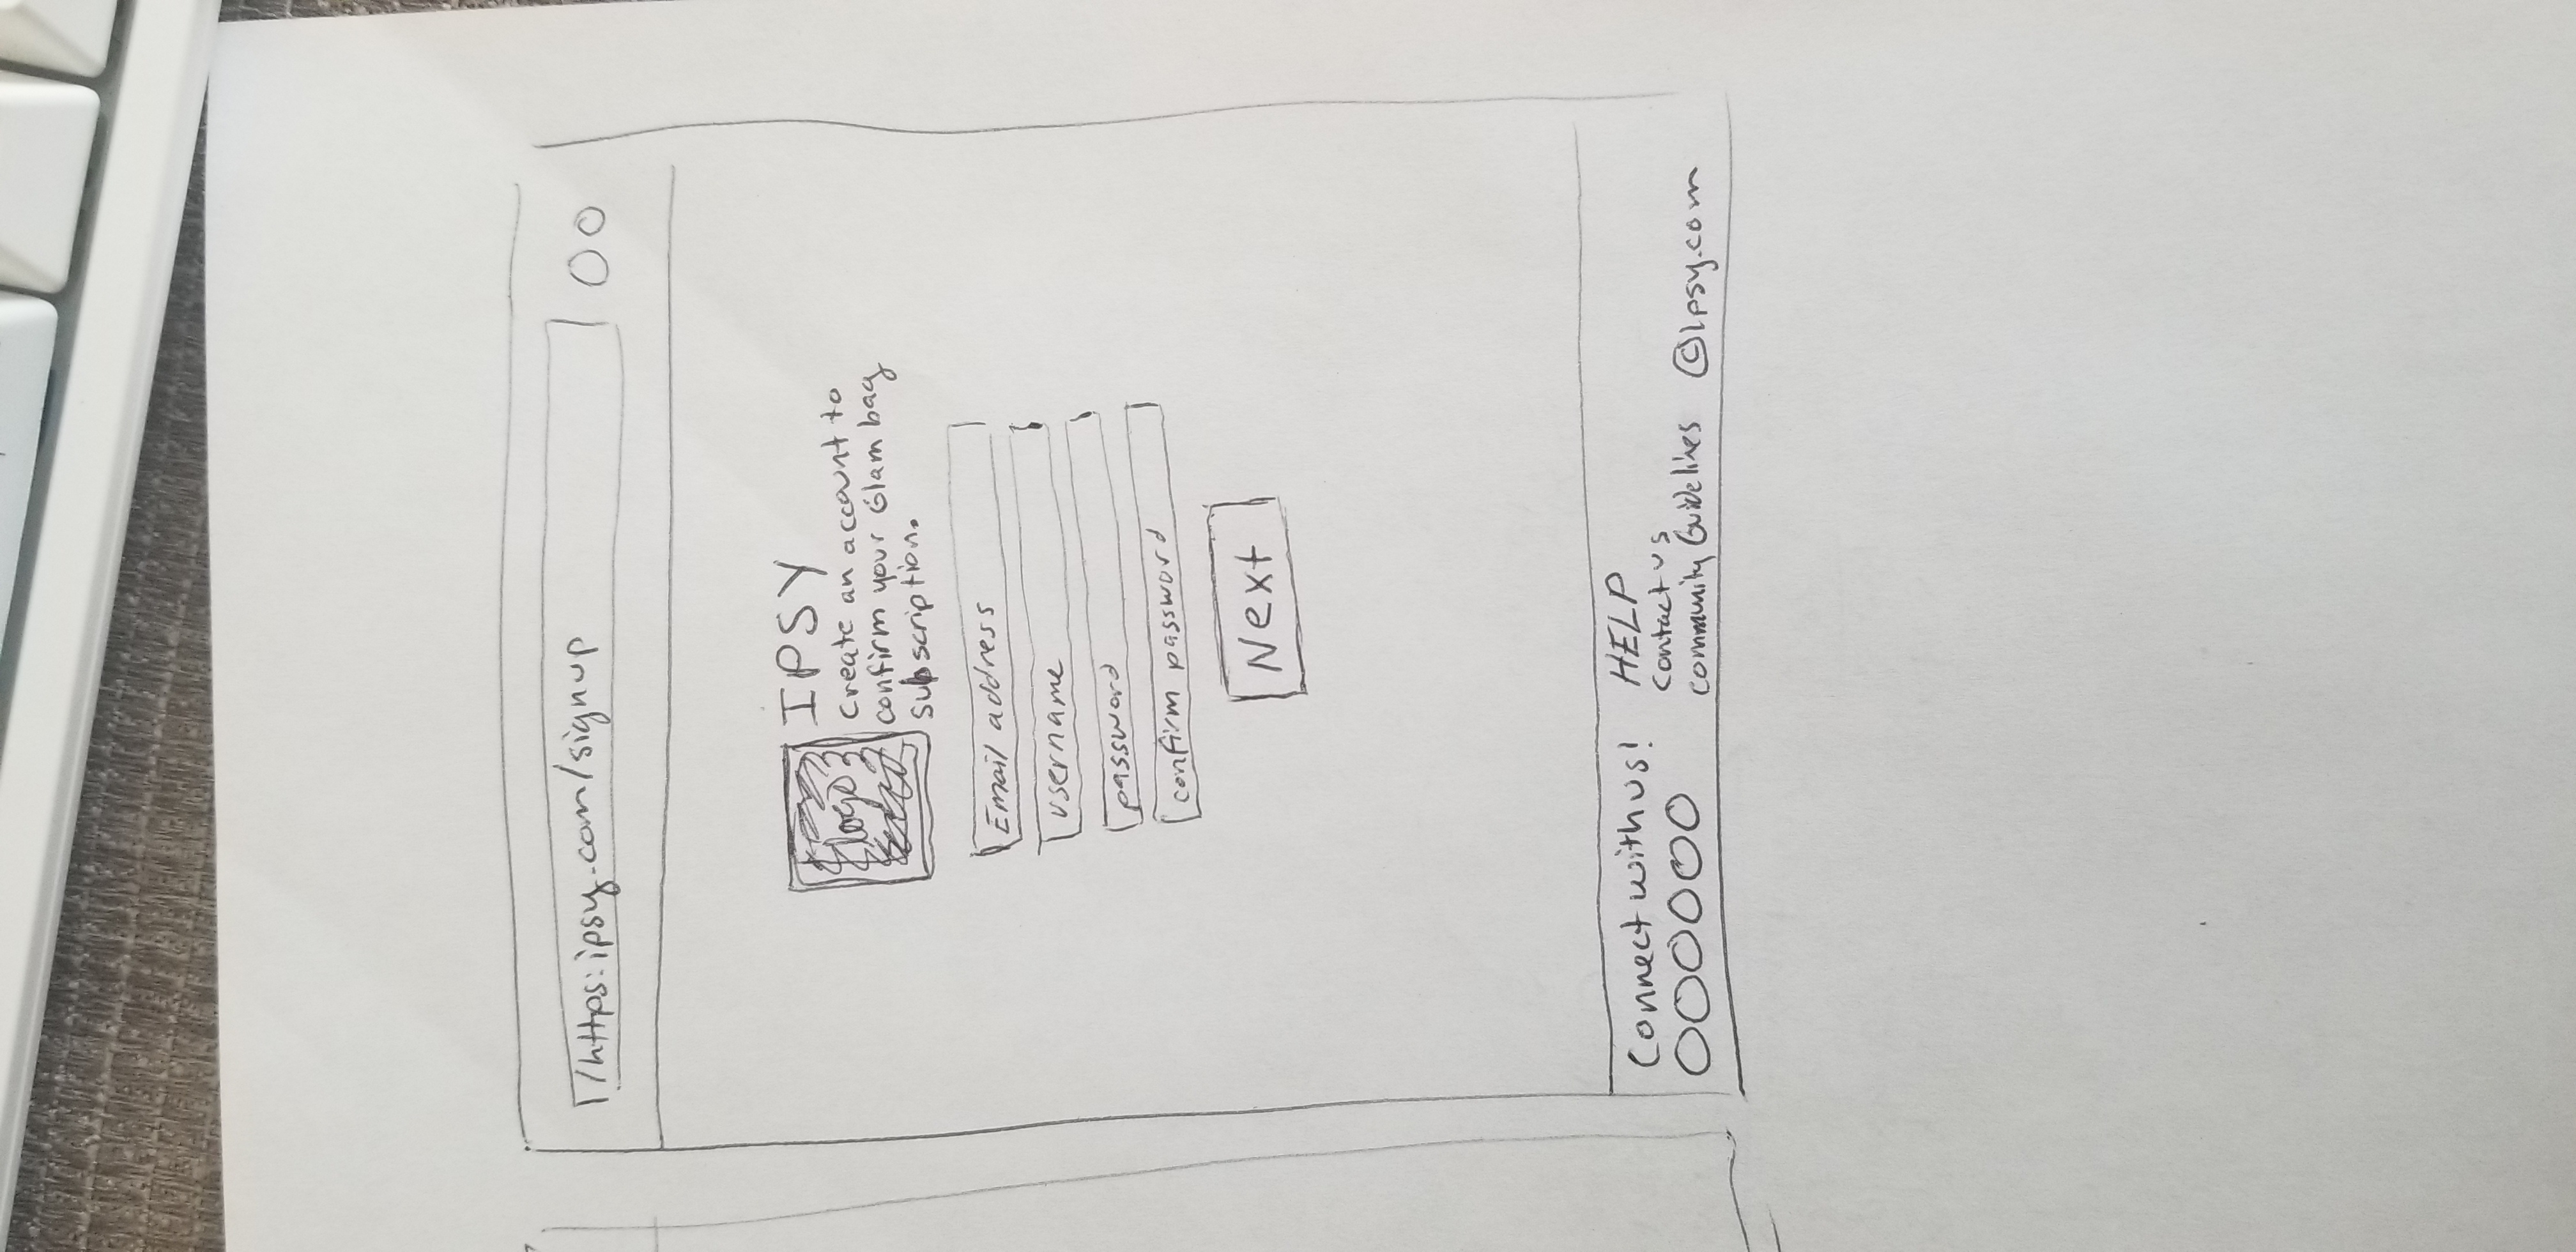 /https:ipsy.com/signup
logo
IPSY
Create an account to
confirm your Glam bag
subscription.
Email address
username
password
confirm password
Next
Connect with us!
HELP
Contact us
Community Guidelines
©Ipsy.com